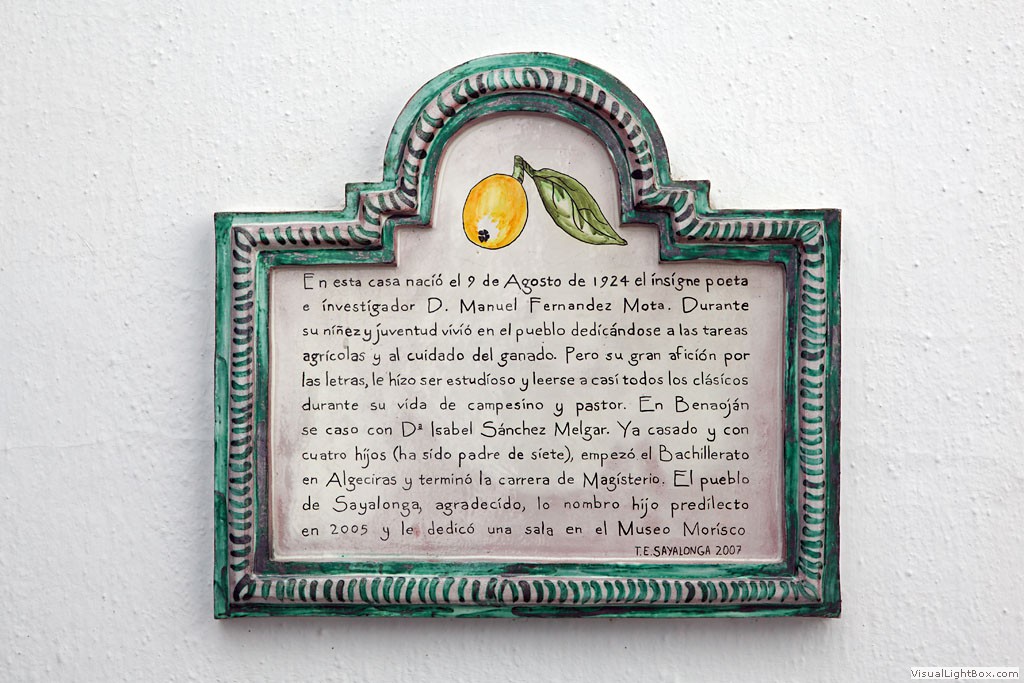 En esta casa nació el 9 de Agosto de 1924 el insigne poeta
e investigador D. Manuel Fernandez Mota. Durante
su niñez y juventud vivió en el pueblo dedicándose a las tareas
agrícolas y al cuidado del ganado. Pero su gran afición por
las letras, le hizo ser estudioso y leerse a casi todos los clásicos
durante su vida de campesino y pastor. En Benaoján
se caso con Dª Isabel Sánchez Melgar. Ya casado y con
cuatro hijos (ha sido padre de siete), empezó el Bachillerato
en Algeciras y terminó la carrera de Magisterio. El pueblo
de Sayalonga, agradecido, lo nombro hijo predilecto
en 2005 y le dedicó una sala en el Museo Morisco
T.E. SAYALONGA 2007
VisualLightBox.com